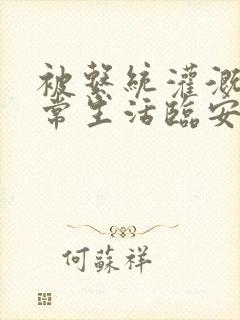 被繫統灌溉
常生活臨安
何蘇祥